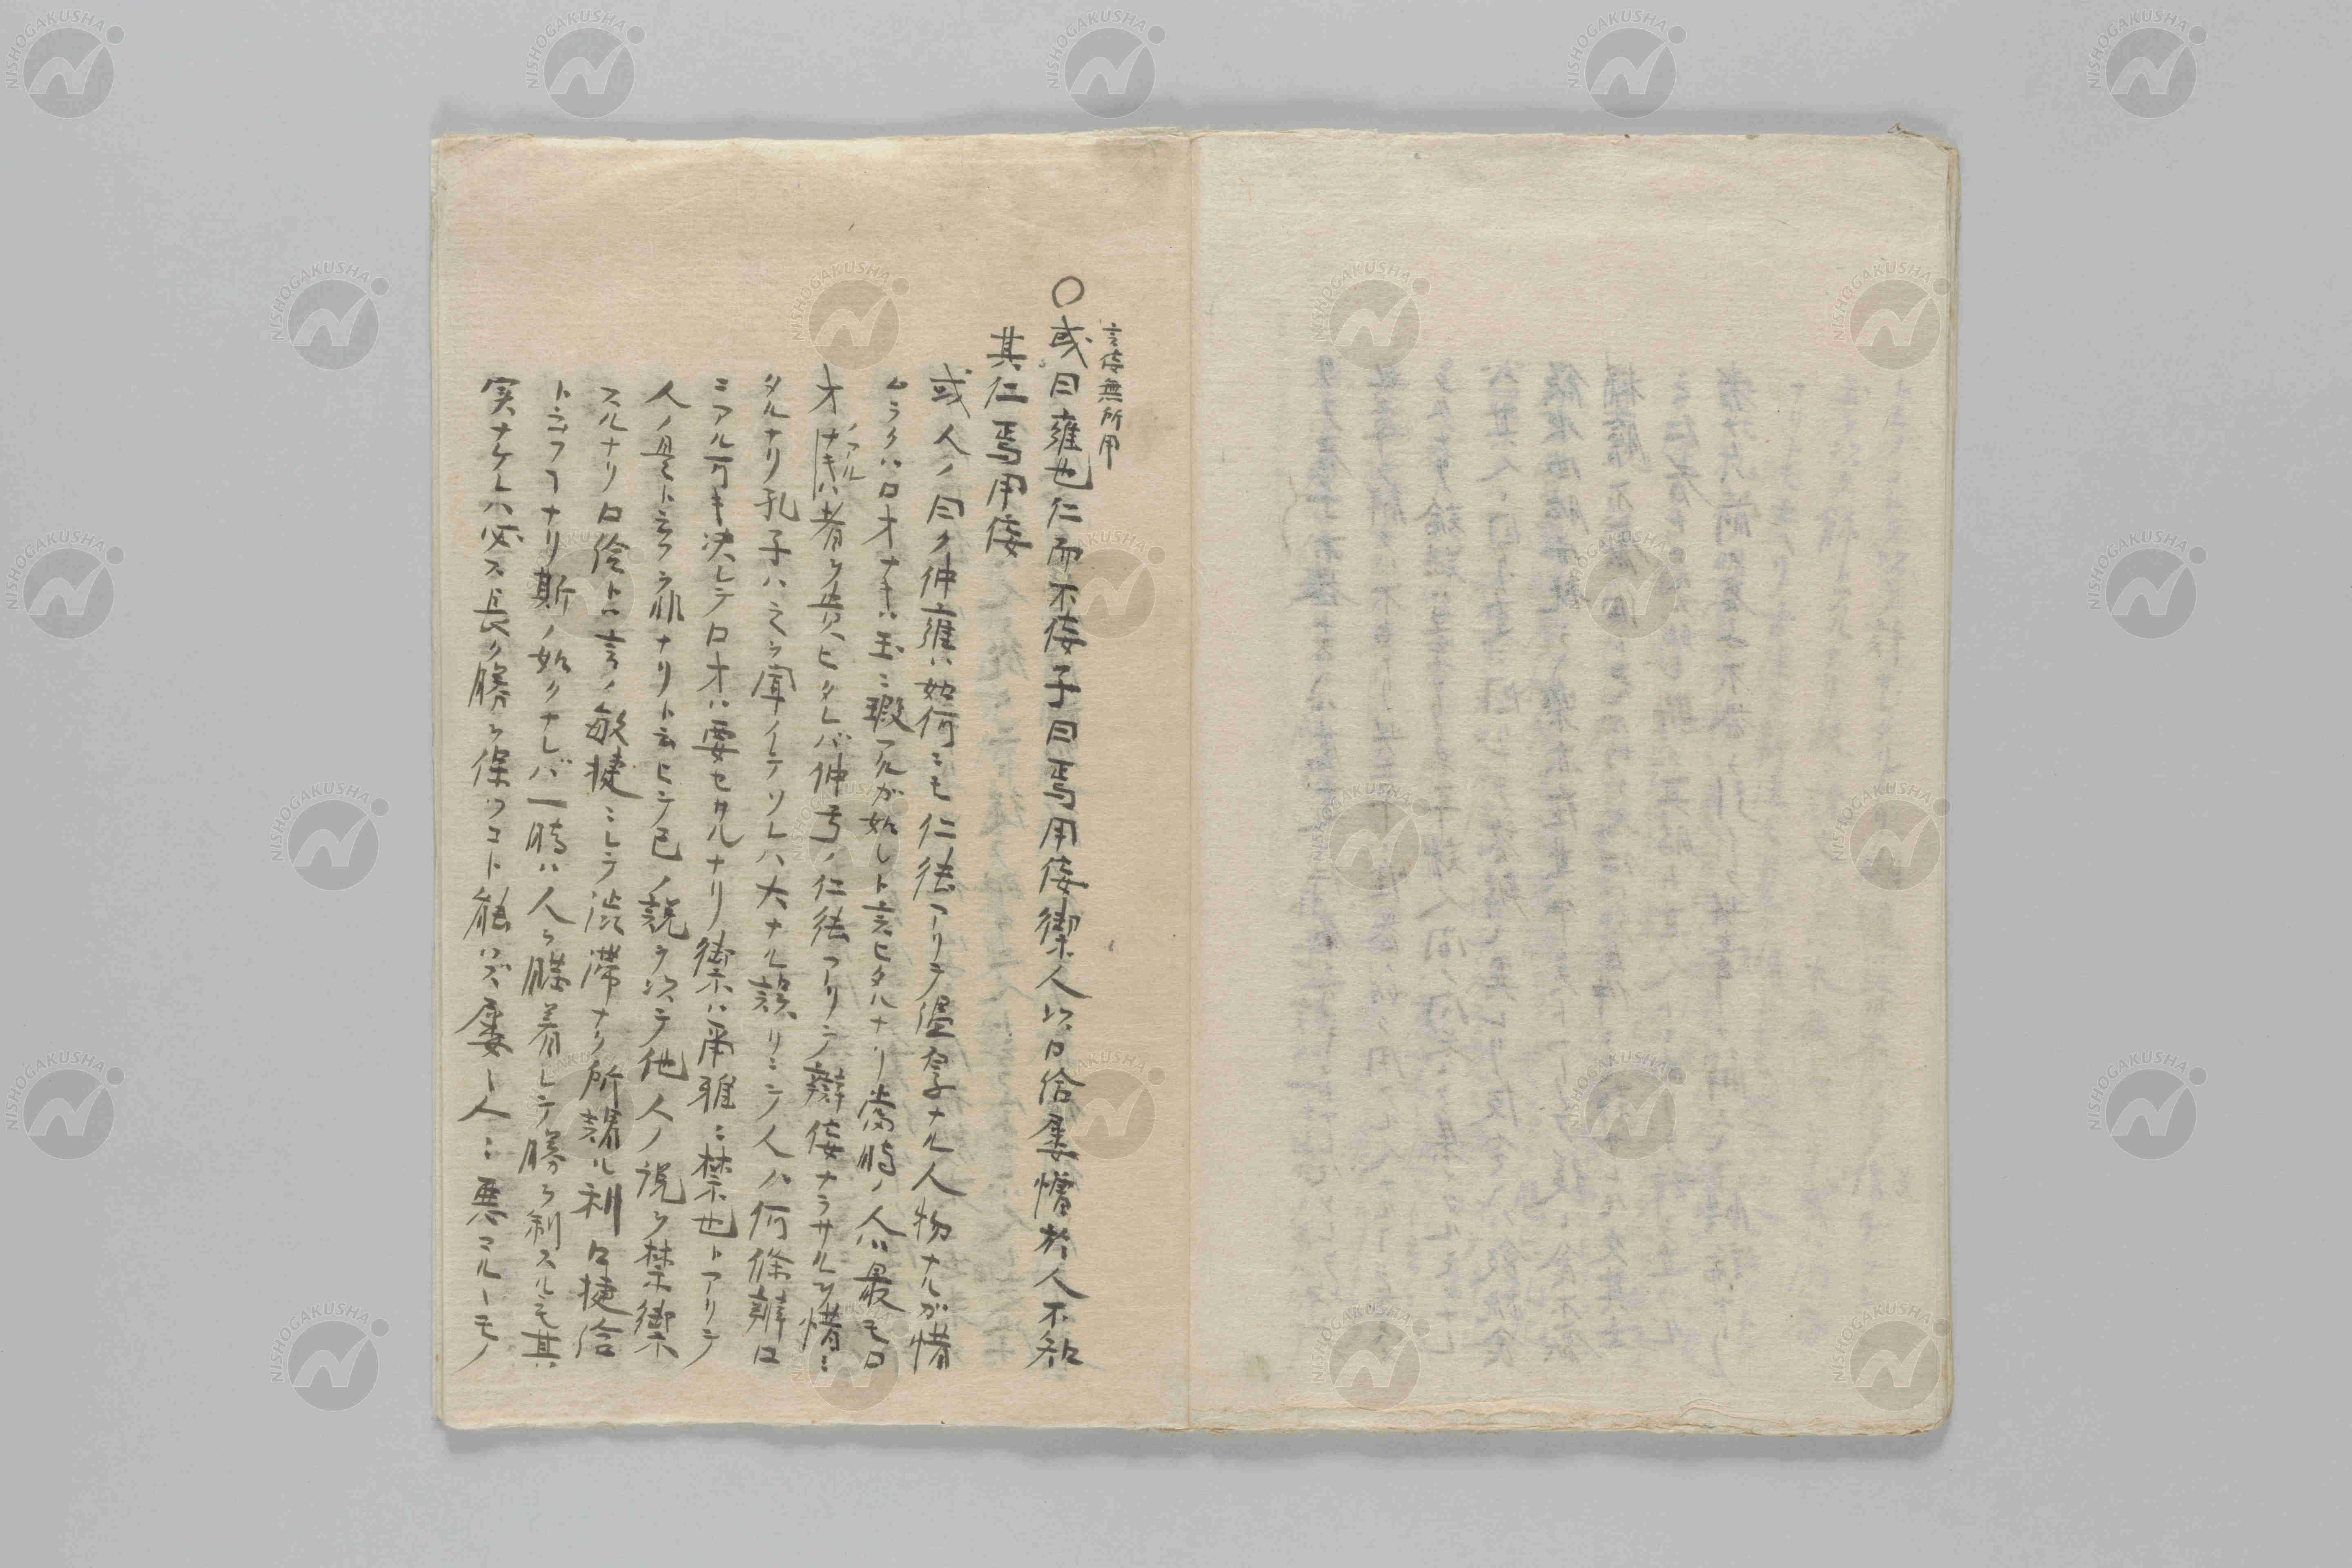 言佞無所用
〇或曰雍也仁而不佞子曰焉用佞禦人以口給屡憎於人不知
其仁焉用佞
或人ノ曰ク仲雍ハ如何ニモ仁徳アリテ温厚ナル人物ナルガ惜
ムラクハ口才ナキハ玉ニ瑕アルガ如シト言ヒタルナリ當時ノ人ハ最モ口
オノアル者ヲ貴ヒタレバ仲弓ノ仁徳アリテ辯佞ナラサルヲ惜ミ
タルナリ孔子ハ之ヲ聞イテソレハ大ナル誤リニテ人ハ何條辯口
ニアル可キ决シテ口才ハ要セサルナリ禦ハ爾雅ニ禁也トアリテ
人ノ是ト云フヲ非ナリト云ヒテ己ノ説ヲ以テ他人ノ説ヲ禁禦
スルナリ口給トハ言ノ敏捷ニシテ渋滞ナク所謂ル利口捷給
ト云フコナリ斯ノ如クナレバ一時ハ人ヲ瞞着シテ勝ヲ制スルモ其
実ナケレハ必ス長ク勝ヲ保ツコト能ハズ屡〻人ニ悪マルヽモノ
NISHOGAKUSHA